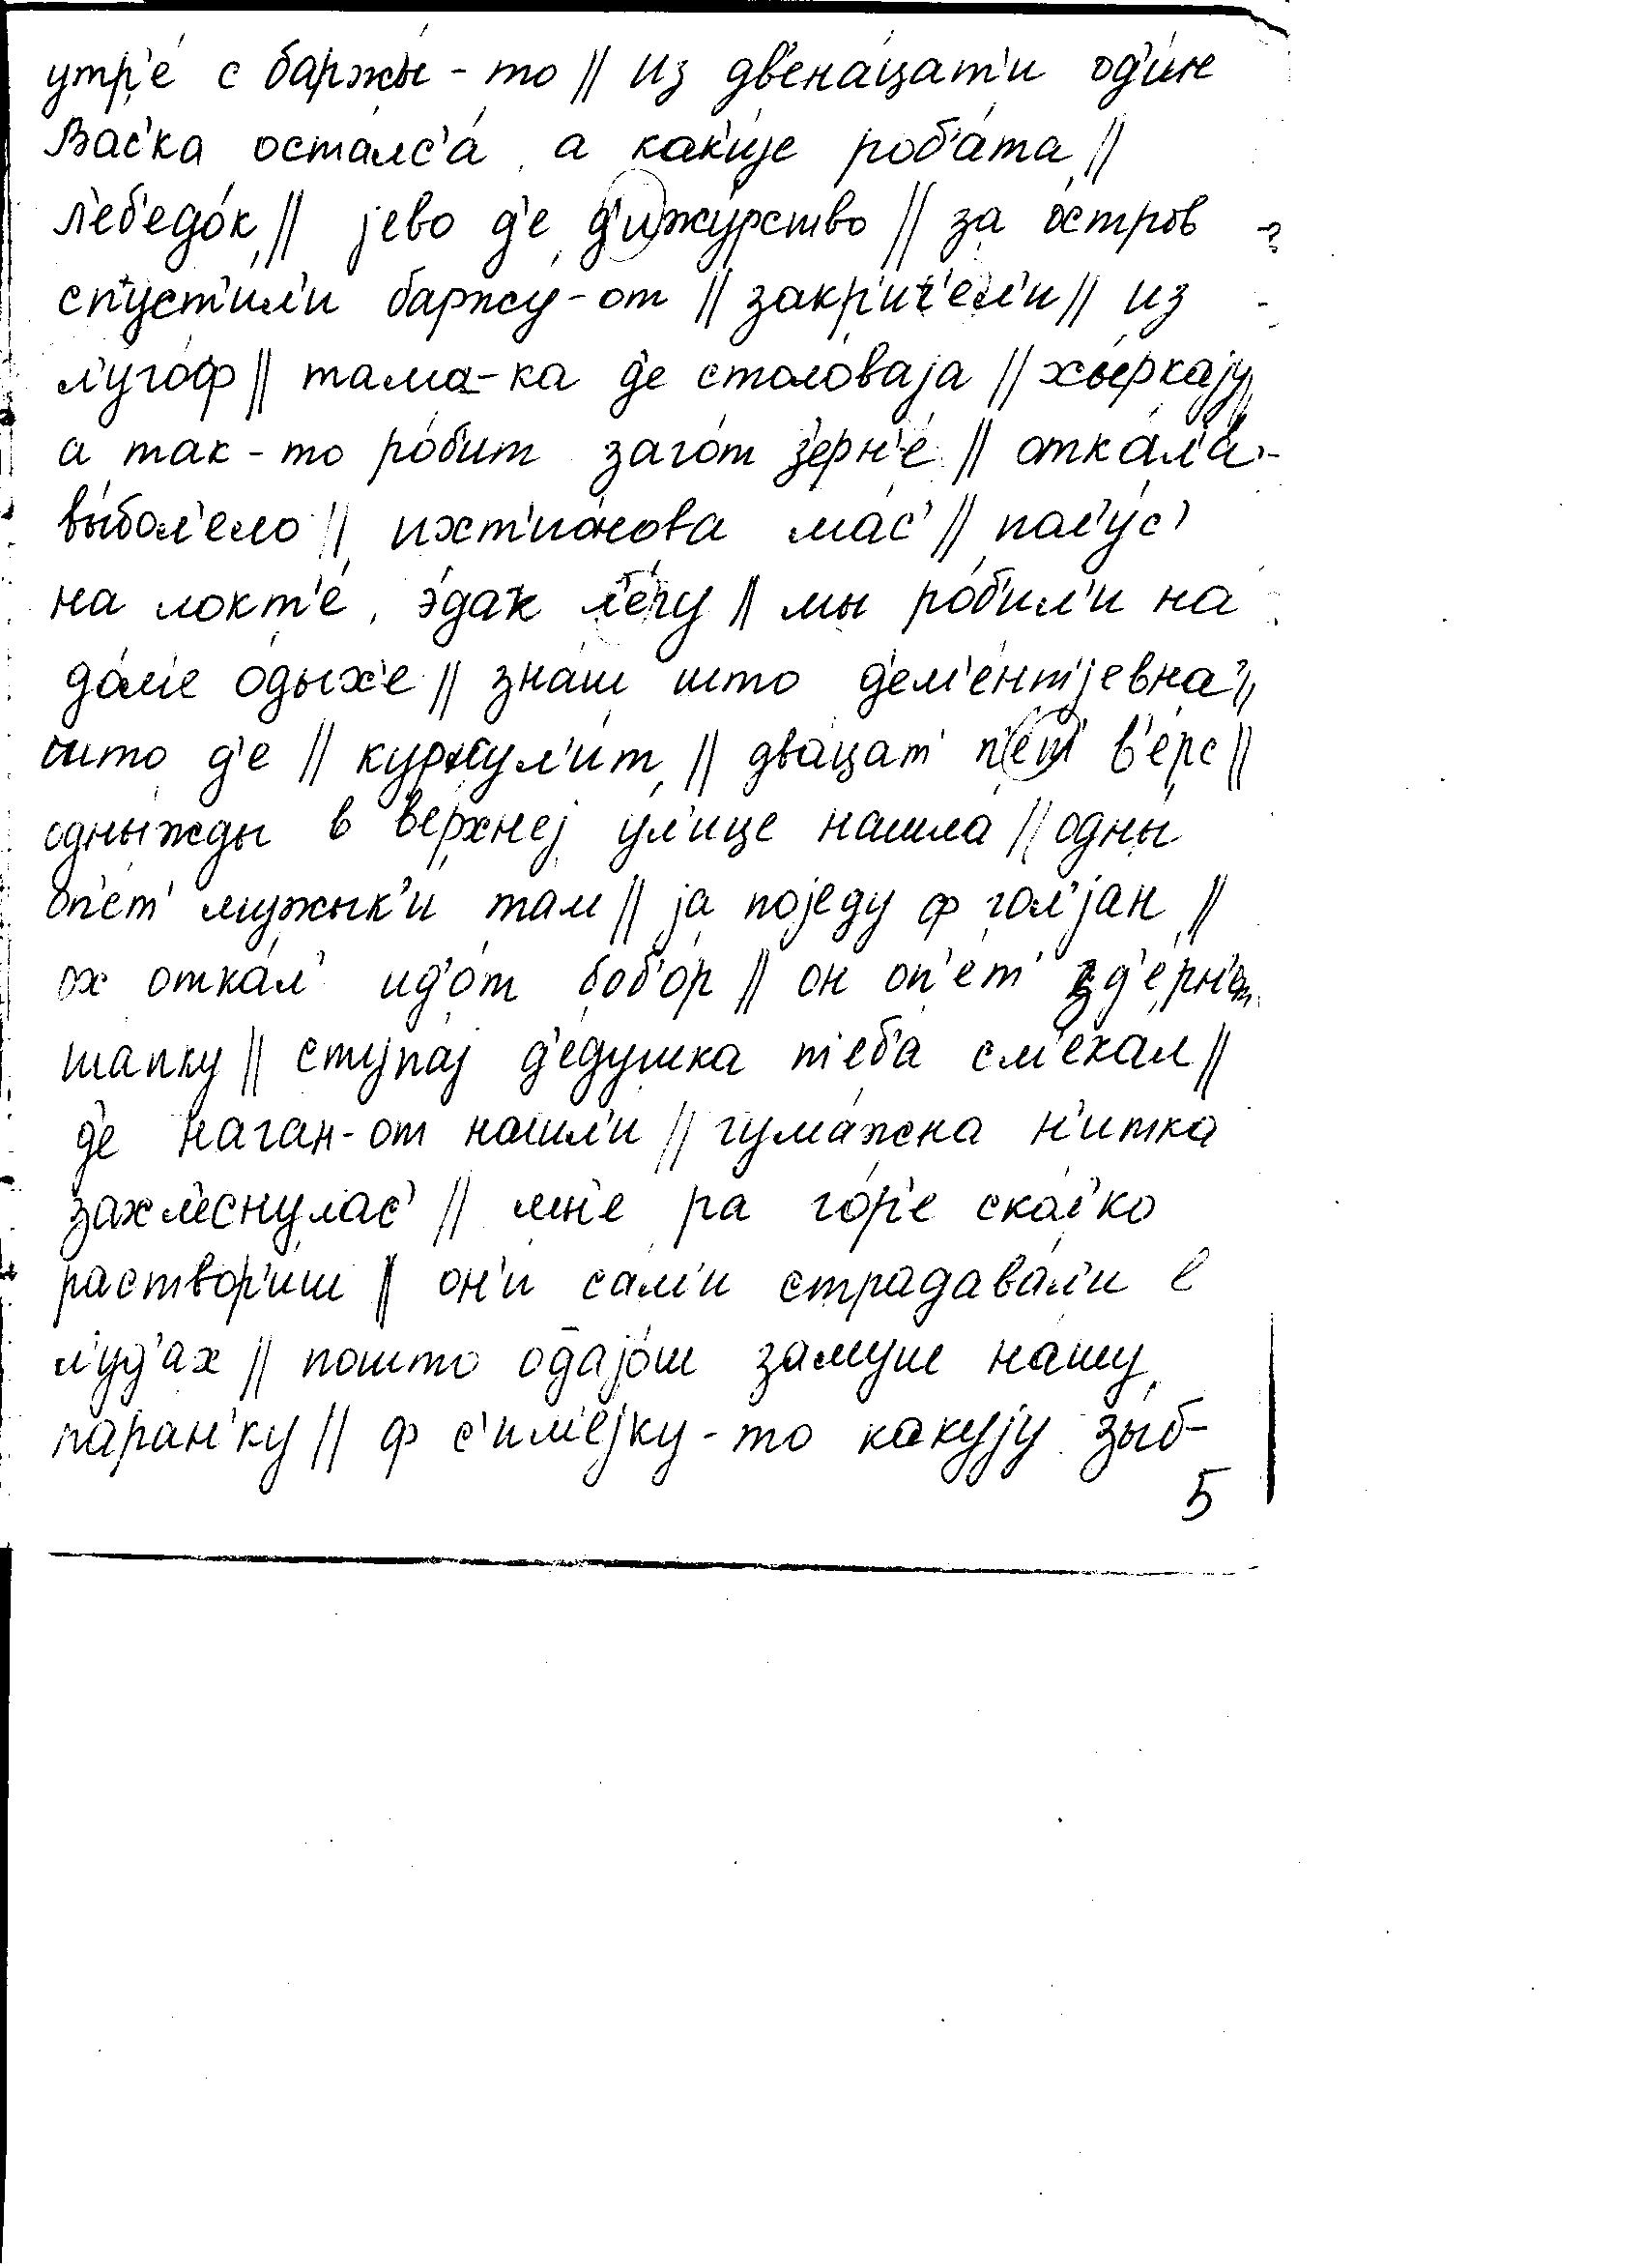 утр'е́ с баржы́-то // из двена́цат'и од'и́н
Вас'ка оста́лс'а́, а как'и́је роб'а́та //
л'еб'едо́к // јево д'е д'ижу́рство // за о́стров
спуст'ил'и баржу́-от // закр'ич'ел'и // из
луго́ф // тама-ка д'е столо́ваја // хы́ркају //
а так-то ро́бит заго́т з'ерн'е́ // отка́л'а-
вы́бол'ело // ихт'ио́нова мас' // пал'у́с'
на локт'е́, э́дак л'е́гу // мы ро́бил'и на
до́м'е о́дых'е // зна́ш што д'ем'е́нт'јевна //
што д'е // курнул'и́т // два́цат' п'ет' в'ерс //
одны́жды в верхнеј у́л'ице нашла́ // одны́
оп'е́т' мужык'и́ там // ја поједу ф гол'јан //
ох отка́л' ид'о́т боб'о́р // он оп'е́т' зд'е́рн'от
шапку // ступа́ј д'е́душка т'еб'а см'ехал //
д'е нага́н-от нашл'и́ // гума́жна н'и́тка
захл'еснулас' // мн'е ра го́р'е ско́л'ко
раствор'и́ш // он'и́ са́м'и страдава́л'и в
л'у́д'ах // пошто одајо́ш замуш нашу
паран'ку // ф с'им'ејку-то какују зыб-
5